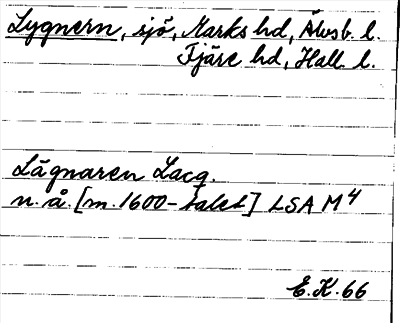 Lygnern, sjö, Marks hd, Älvsb. l.
Fjäre hd, Hall. l.
Lägnaren Lacq.
n. å. [m. 1600-talet] LSA M4
E.K. 66